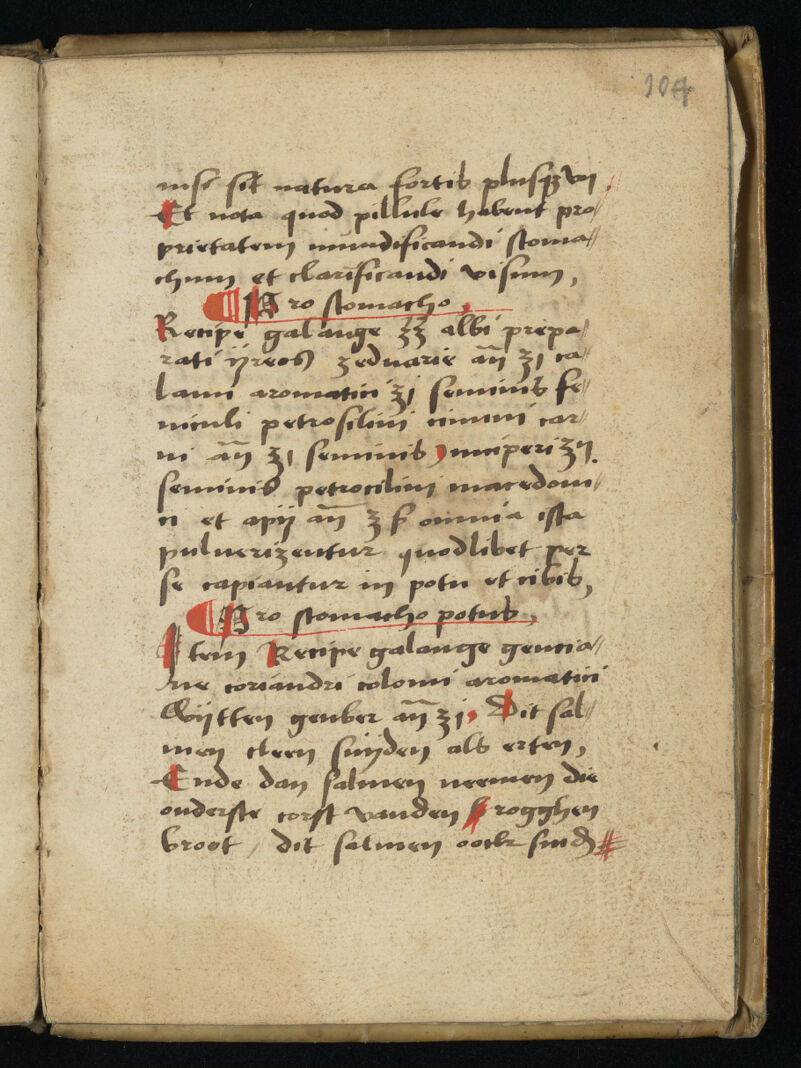 104
nisi sit natura fortis plusqȝ vij.
Et nota quod pillule habent pro//
prietatem mundificandi stoma//
chum et clarificandi visum,
¶ Pro stomacho,
Recipe galange ʒʒ albi prepa//
rati ÿreos zeduarie añ ʒj ca//
lami aromatici ʒj seminis fe//
niculi petrosilini cimini car//
ui añ ʒj seminis juniperi ʒij.
seminis petrocilini macedoni//
ci et apij añ ʒ ſ omnia ista
pulverizentur quodlibet per
se capiantur in potu et cibis,
¶ Pro stomacho potus,
Item Recipe galange gencia//
ne coriandri colomi aromatici
Wÿtten genber añ ʒj, Dit sal//
men cleen snÿden als erten,
Ende dan salmen neemen die
onderste corst vanden Rogghen
broot, dit salmen oock snidẽ